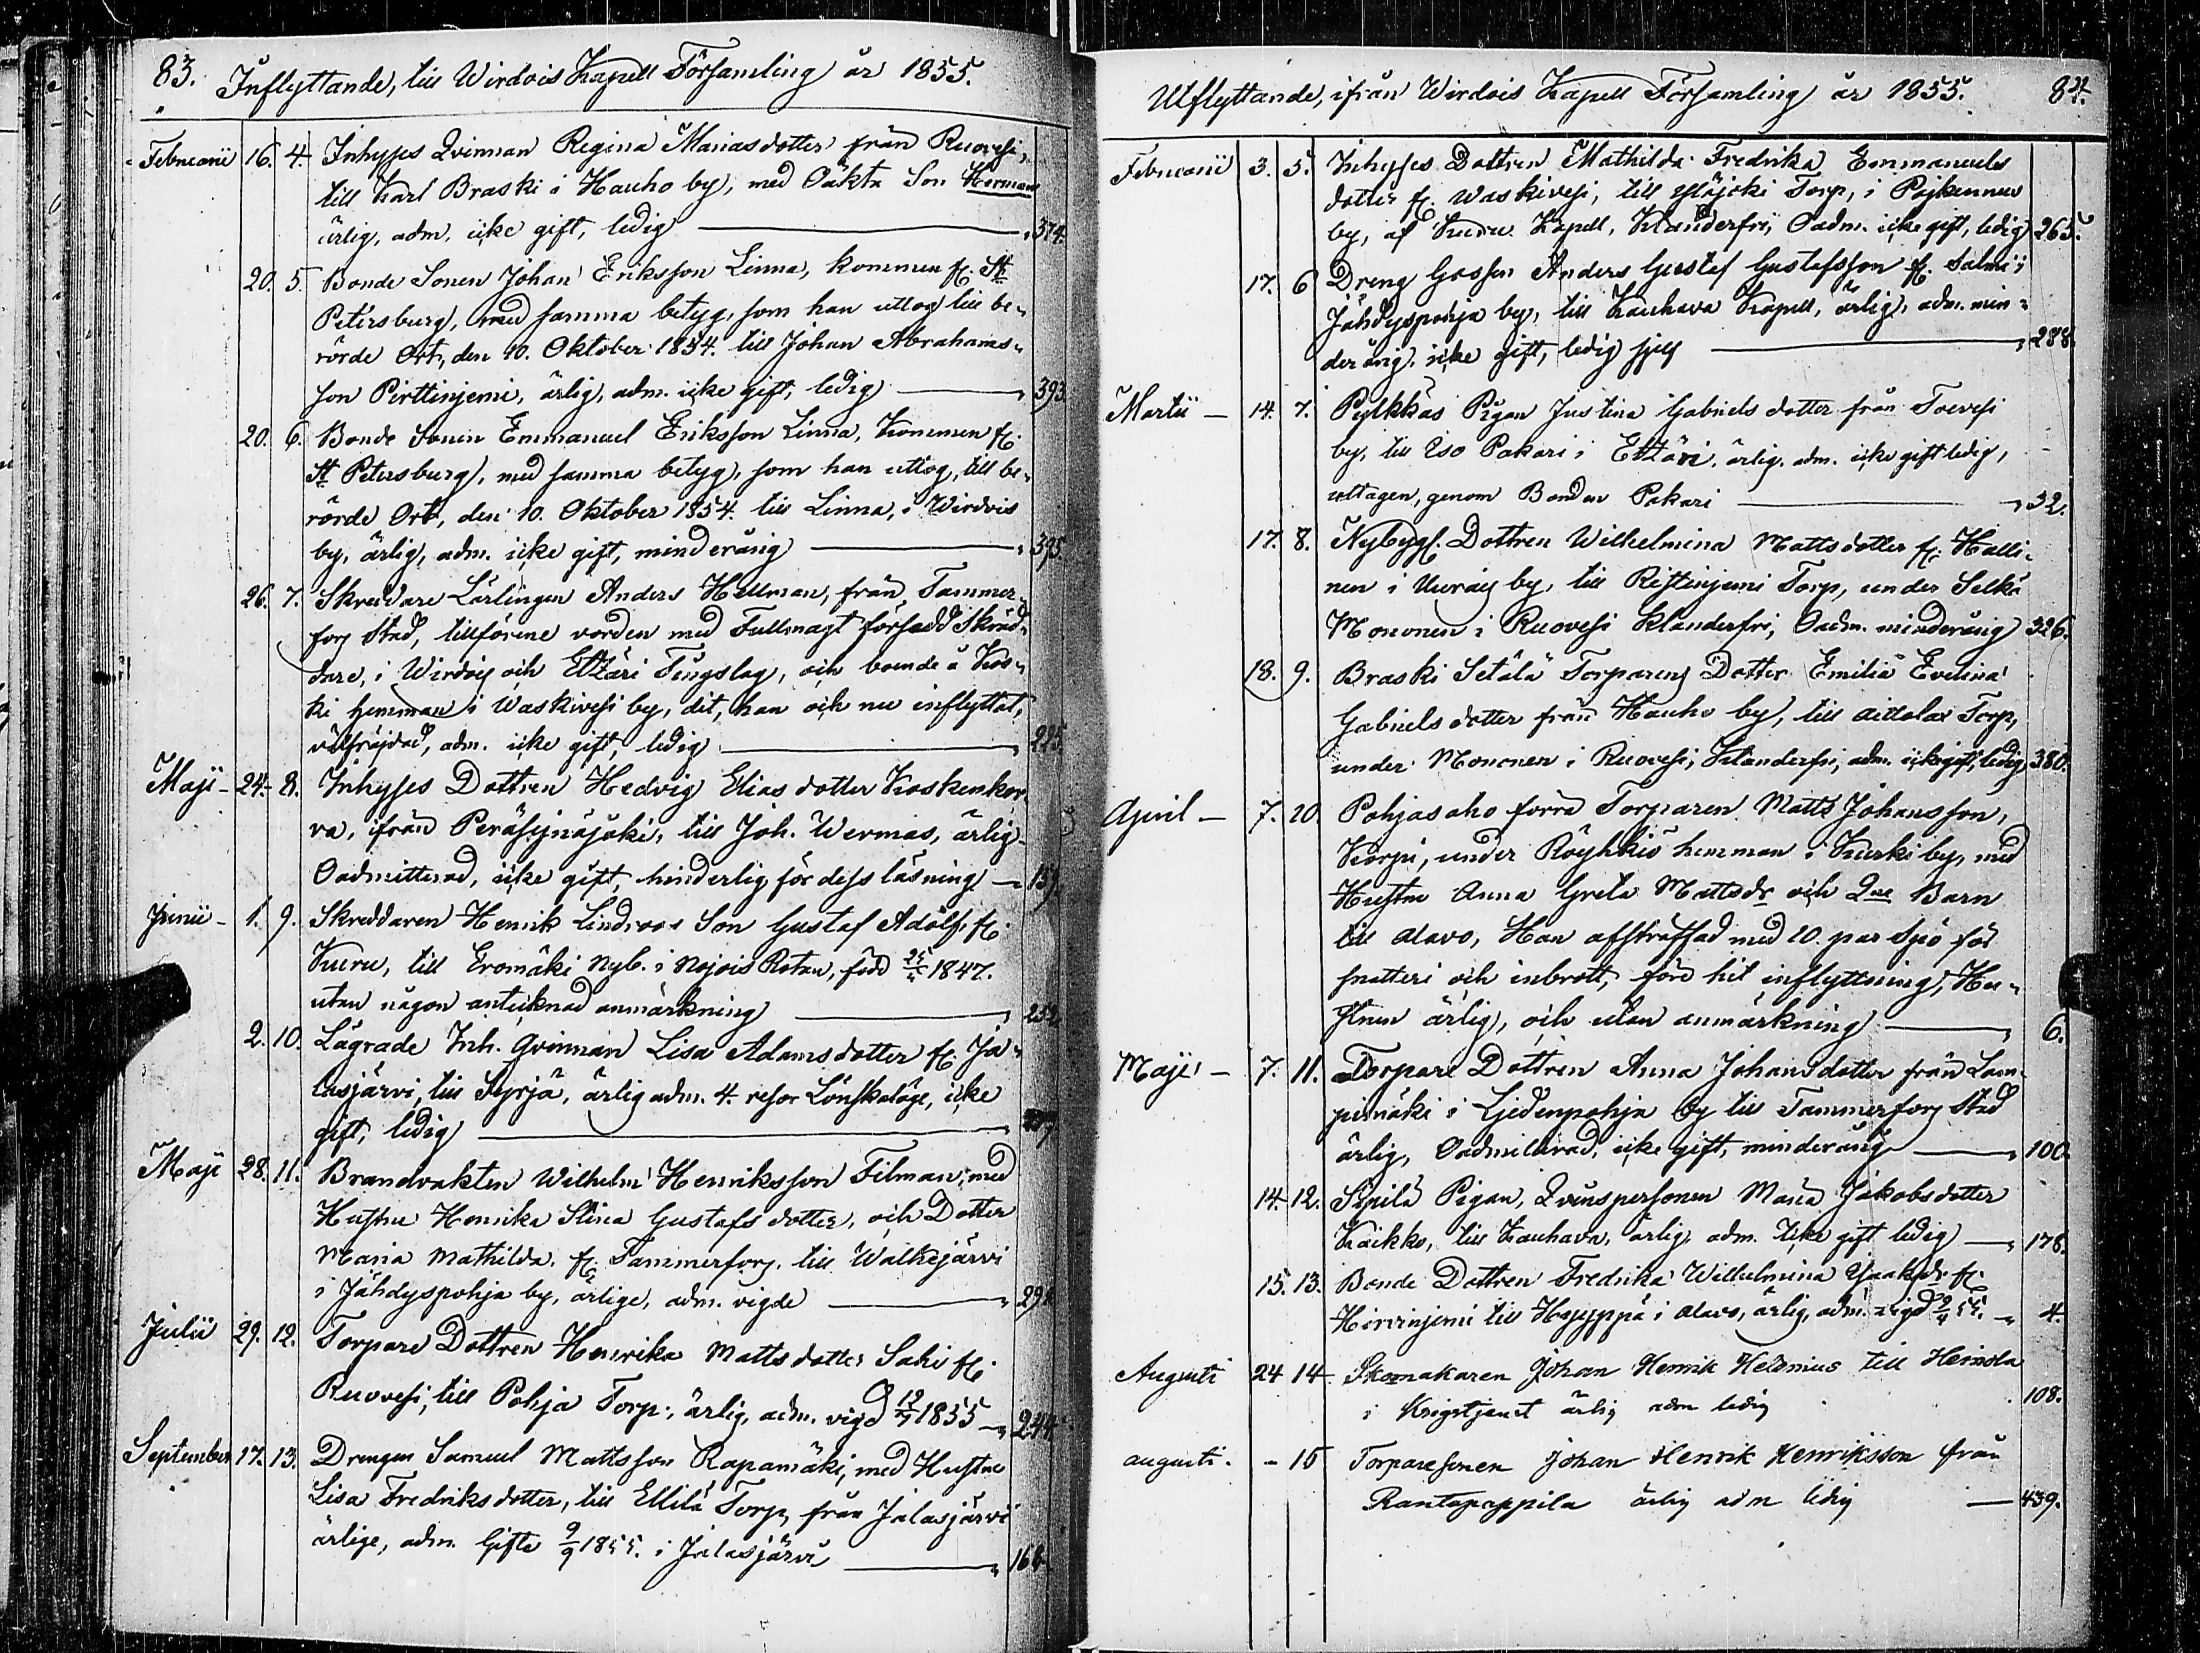 83. Inflyttande, till Wirdois Kapell Församling år 1855.
Februarii 16. 4. Inhyses Qvinnan Regina Mariasdotter från Ruovesi,
till Karl Braski i Hauho by, med Oäkta Son Herman
ärlig, adm. icke gift, ledig 374.
20. 5. Bonde Sonen Johan Eriksson Linna, kommen fr. St
Petersburg, med samma betyg, som han uttog till be-
rörde Ort, den 10. Oktober 1854. till Johan Abrahams-
son Pirttinjemi, ärlig, adm. icke gift, ledig 393.
20. 6. Bonde Sonen Emmanuel Eriksson Linna, Kommen fr.
St Petersburg, med samma betyg, som han uttog, till be-
rörde Ort, den 10. Oktober 1854. till Linna, i Wirdois
by, ärlig, adm. icke gift, minderårig 395.
26. 7. Skreddare Lärlingen Anders Hellman, från Tammer-
fors Stad, tillförene vorden med Fullmagt försedd Skräd-
dare, i Wirdois och Etzäri Tingslag, och boende å Kos-
ki hemman i Waskivesi by, dit, han och nu inflyttat,
välfräjdad, adm. icke gift, ledig 225.
Maji 24. 8. Inhyses Dottren Hedvig Elias dotter Koskenkor-
va, ifrån Peräseinäjoki, till Joh. Wermas, ärlig
Oadmitterad, icke gift, hinderlig för dess läsning 159.
Junii 1. 9. Skreddaren Henrik Lindroos Son Gustaf Adolf fr.
Kuru, till Eromäki Nyb. i Nojois Rotan, född 1847.
utan någon antecknad anmärkning 252
2. 10. Lägrade Inh. Qvinnan Lisa Adamsdotter fr. Ja-
lasjärvi, till Syrjä, ärlig adm. 4. resor Lönskaläge, icke
gift, ledig
Maji 28. 11. Brandvakten Wilhelm Henriksson Filman, med
Hustru Henrika Stina Gustafs dotter, och Dotter
Maria Mathilda, fr. Tammerfors, till Walkejärvi
i Jähdyspohja by, ärlige, adm. vigde 291.
Julii 29. 12. Torpare Dottren Henrika Mattsdotter Sahi fr.
Ruovesi, till Pohja Torp, ärlig, adm. vigd 12/7 1855 244.
September 17. 13. Drengen Samuel Mattsson Rapamäki, med Hustru
Lisa Fredriksdotter, till Ellilä Torp, från Jalasjärvi
ärlige, adm. Gifte 9/9 1855. i Jalasjärvi 168.
Utflyttande, ifrån Wirdois Kapell Församling år 1855. 84.
Februarii 3. 5. Inhyses Dottren Mathilda Fredrika Emmanuels
dotter fr. Waskivesi, till Yläjoki Torp, i Pojkennus
by, af Kuru Kapell, Klanderfri, Oadm. icke gift, ledig 265.
17. 6 Dreng Gossen Anders Gustaf Gustafsson fr. Salmi i
Jähdyspohja by, till Kauhava Kapell, ärlig, adm. min-
derårig, icke gift, ledig sjelf 288.
Martii 14. 7. Pylkkäs Pigan Justina Gabriels dotter från Toevesi
by, till Iso Pakari i Etzäri, ärlig. adm. icke gift ledig,
uttagen, genom Bonden Pakari 32.
17. 8. Nybygs. Dottren Wilhelmina Mattsdotter fr. Halli-
nen i Uurais by, till Ristinjemi Torp, under Selkä
Mononen i Ruovesi Klanderfri, Oadm. minderårig 326.
18. 9. Braski Setälä Torparens Dotter Emilia Evelina
Gabriels dotter från Hauho by, till Aittolax Torp,
under Mononen i Ruovesi, Klanderfri, adm. icke gift, ledig 380.
April 7. 10. Pohjasaho förra Torparen Matts Johansson,
Korpi, under Röyhkiö hemman i Kurki by, med
Hustru Anna Greta Mattsdr och 2ne Barn
till Alavo, Han afstraffad med 20. par Spö för
snatteri och inbrott, före hit inflyttning, Hu-
strun ärlig, och utan anmärkning 6.
Maji 7. 11. Torpare Dottren Anna Johansdotter från Lam-
pimäki i Liedenpohja by till Tammerfors Stad
ärlig, Oadmitterad, icke gift, minderårig 100.
14. 12. Sipilä Pigan, Qvinspersonen Maria Jakobsdotter
Kaikko, till Kauhava, ärlig, adm. icke gift ledig 178.
15. 13. Bonde Dottren Fredrika Wilhelmina Isaksdr fr.
Hirvinjemi till Hyyppä i Alavo, ärlig, adm. vigd 9/4 55. 4.
Augusti 24 14 Skomakaren Johan Henrik Helenius till Heinola
i Krigstjenst ärlig adm ledig 108.
augusti. - 15 Torparesonen Johan Henrik Henriksson från
Rantapappila ärlig adm ledig 439.